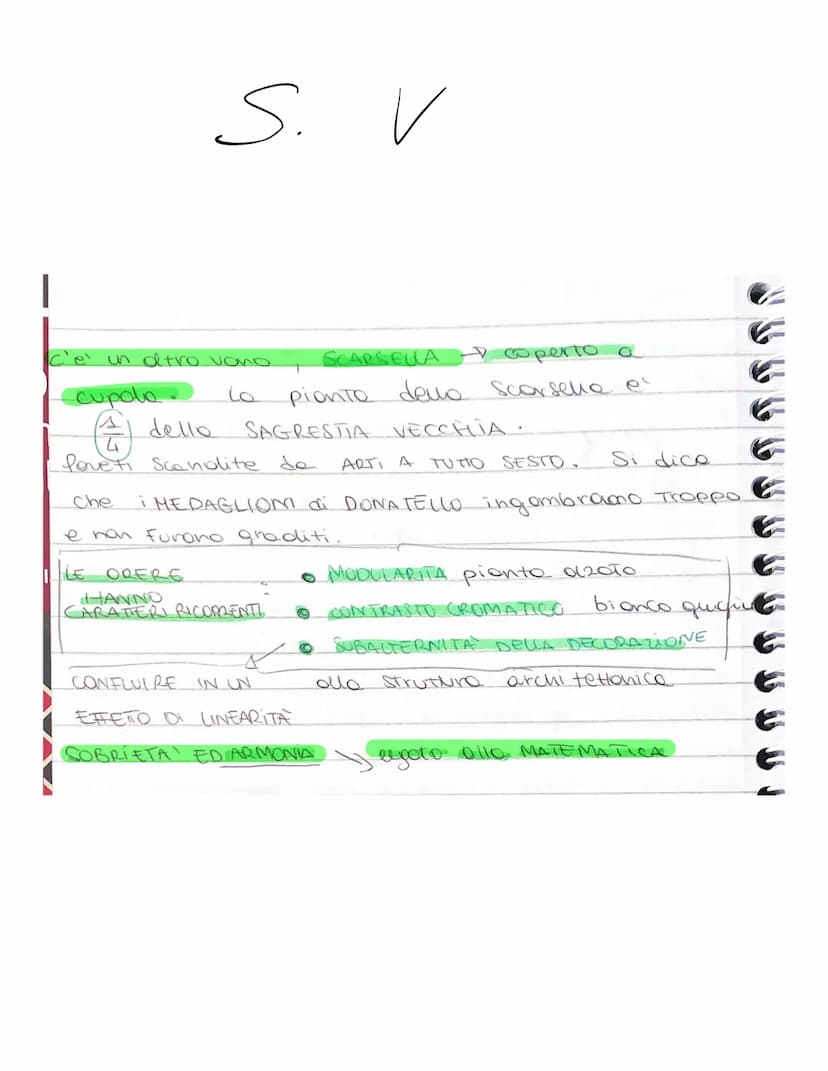 S. V
C'e' un altro vano, SCARSELLA → coperto a
cupola. La pianta della Scarsella e'
1/4 della SAGRESTIA VECCHIA.
Pareti Scandite da ARTI A TUTTO SESTO. Si dice
che i MEDAGLIONI di DONATELLO ingombrano Troppo
e non furono graditi.
LE OPERE • MODULARITÀ pianta
HANNO
CARATTERI RICORRENTI : • CONTRASTO CROMATICO bianco
• SUBALTERNITA' DELLA DECORAZIONE
CONFLUIRE IN UN alla struttura architettonica
EFFETTO DI LINEARITÀ
SOBRIETA' ED ARMONIA → legato alla MATEMATICA